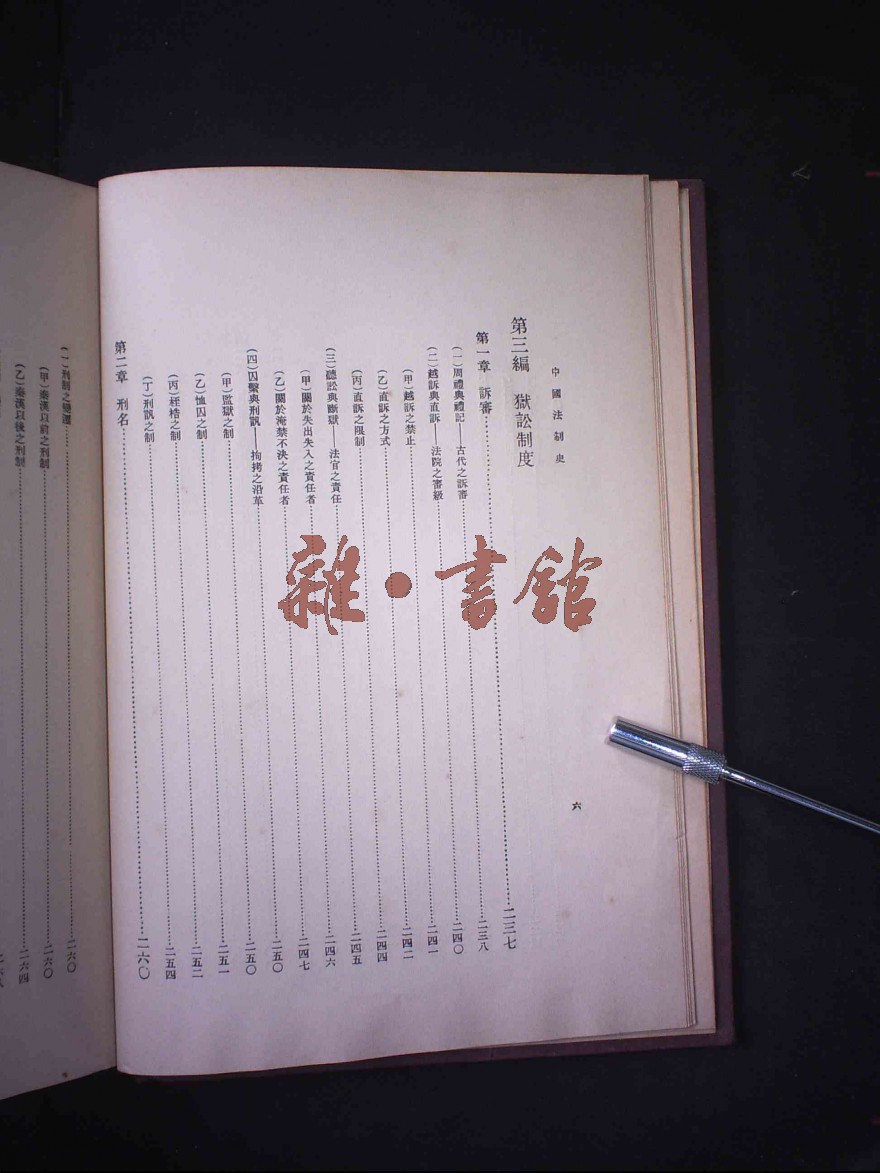 中國法制史
六
第三編 獄訟制度……二三七
第一章 訴審……二三八
(一)周禮與禮記——古代之訴審……二四〇
(二)越訴與直訴——法院之審級……二四一
(甲)越訴之禁止……二四二
(乙)直訴之方式……二四四
(丙)直訴之限制……二四五
(三)聽訟與斷獄——法官之責任……二四六
(甲)關於失出失入之責任者……二四七
(乙)關於淹禁不決之責任者……二五〇
(四)囚繫與刑訊——拘拷之沿革……二五〇
(甲)監獄之制……二五一
(乙)恤囚之制……二五二
(丙)桎梏之制……二五四
(丁)刑訊之制
第二章 刑名……二六〇
(一)刑制之變遷……二六〇
(甲)秦漢以前之刑制……二六〇
(乙)秦漢以後之刑制……二六四
雜·書館